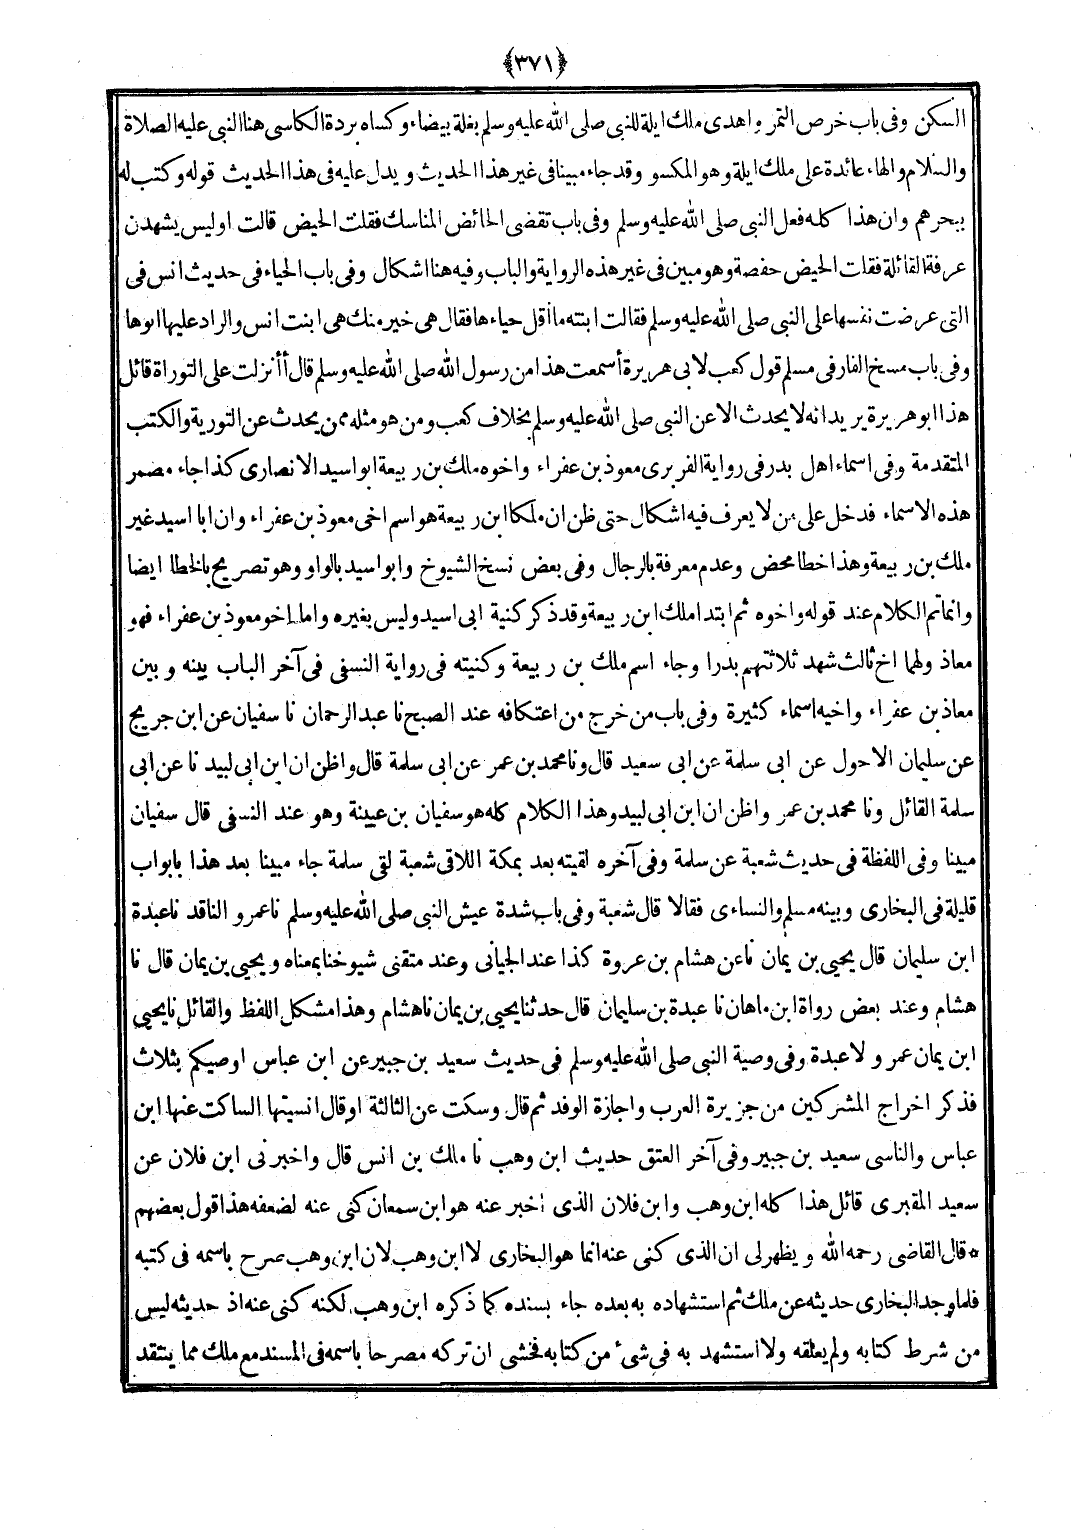 ﴿٣٧١﴾
السكن وفى باب خرص التمر واهدى ملك ايلة للنبى صلى الله عليه وسلم بغلة بيضاء وكساه بردة الكاسى هنا النبى عليه الصلاة
والسلام والهاء عائدة على ملك ايلة وهو المكسو وقد جاء مبينا فى غير هذا الحديث ويدل عليه فى هذا الحديث قوله وكتب له
ببحرهم وان هذا كله فعل النبى صلى الله عليه وسلم وفى باب تقضى الحائض المناسك فقلت الحيض قالت اوليس يشهدن
عرفة القائلة فقلت الحيض حفصة وهو مبين فى غير هذه الرواية والباب وفيه هنا اشكال وفى باب الحياء فى حديث انس فى
التى عرضت نفسها على النبى صلى الله عليه وسلم فقالت ابنته ما أقل حياءها فقال هى خير منك هى ابنت انس والراد عليها ابوها
وفى باب مسخ الفار فى مسلم قول كعب لابى هريرة أسمعت هذا من رسول الله صلى الله عليه وسلم قال أأنزلت على التوراة قائل
هذا ابو هريرة يريد انه لا يحدث الا عن النبى صلى الله عليه وسلم بخلاف كعب ومن هو مثله ممن يحدث عن التورية والكتب
المتقدمة وفى اسماء اهل بدر فى رواية الفربرى معوذ بن عفراء واخوه ملك بن ربيعة ابو اسيد الانصارى كذا جاء مضمر
هذه الاسماء فدخل على من لا يعرف فيه اشكال حتى ظن ان ملكا ابن ربيعة هو اسم اخى معوذ بن عفراء وان ابا اسيد غير
ملك بن ربيعة وهذا خطا محض وعدم معرفة بالرجال وفى بعض نسخ الشيوخ وابو اسيد بالواو وهو تصريح بالخطا ايضا
وانما تم الكلام عند قوله واخوه ثم ابتدا ملك ابن ربيعة وقد ذكر كنية ابى اسيد وليس بغيره واما اخو معوذ بن عفراء فهو
معاذ ولهما اخ ثالث شهد ثلاثتهم بدرا وجاء اسم ملك بن ربيعة وكنيته فى رواية النسفى فى آخر الباب بينه و بين
معاذ بن عفراء واخيه اسماء كثيرة وفى باب من خرج من اعتكافه عند الصبح نا عبد الرحمان نا سفيان عن ابن جريج
عن سليمان الاحول عن ابى سلمة عن ابى سعيد قال ونا محمد بن عمر عن ابى سلمة قال واظن ان ابن ابى لبيد نا عن ابى
سلمة القائل ونا محمد بن عمر واظن ان ابن ابى لبيد وهذا الكلام كله هو سفيان بن عيينة وهو عند النسفى قال سفيان
مبينا وفى اللفظة فى حديث شعبة عن سلمة وفى آخره لقيته بعد بمكة اللاقى شعبة لقى سلمة جاء مبينا بعد هذا بابواب
قليلة فى البخارى وبينه مسلم والنساءى فقالا قال شعبة وفى باب شدة عيش النبى صلى الله عليه وسلم نا عمرو الناقد نا عبدة
ابن سليمان قال يحيى بن يمان نا عن هشام بن عروة كذا عند الجيانى وعند متقنى شيوخنا بمعناه ويحيى بن يمان قال نا
هشام وعند بعض رواة ابن ماهان نا عبدة بن سليمان قال حدثنا يحيى بن يمان نا هشام وهذا مشكل اللفظ والقائل نا يحيى
ابن يمان عمر و لا عبدة وفى وصية النبى صلى الله عليه وسلم فى حديث سعيد بن جبير عن ابن عباس اوصيكم بثلاث
فذكر اخراج المشركين من جزيرة العرب واجازة الوفد ثم قال وسكت عن الثالثة او قال انسيتها الساكت عنها ابن
عباس والناسى سعيد بن جبير وفى آخر العتق حديث ابن وهب نا ملك بن انس قال واخبرنى ابن فلان عن
سعيد المقبرى قائل هذا كله ابن وهب وابن فلان الذى اخبر عنه هو ابن سمعان كنى عنه لضعفه هذا قول بعضهم
* قال القاضى رحمه الله و يظهر لى ان الذى كنى عنه انما هو البخارى لا ابن وهب لان ابن وهب صرح باسمه فى كتبه
فلما وجد البخارى حديثه عن ملك ثم استشهاده به بعده جاء بسنده كما ذكره ابن وهب لكنه كنى عنه اذ حديثه ليس
من شرط كتابه ولم يعلقه ولا استشهد به فى شئ من كتابه فخشى ان تركه مصرحا باسمه فى المسند مع ملك مما ينتقد